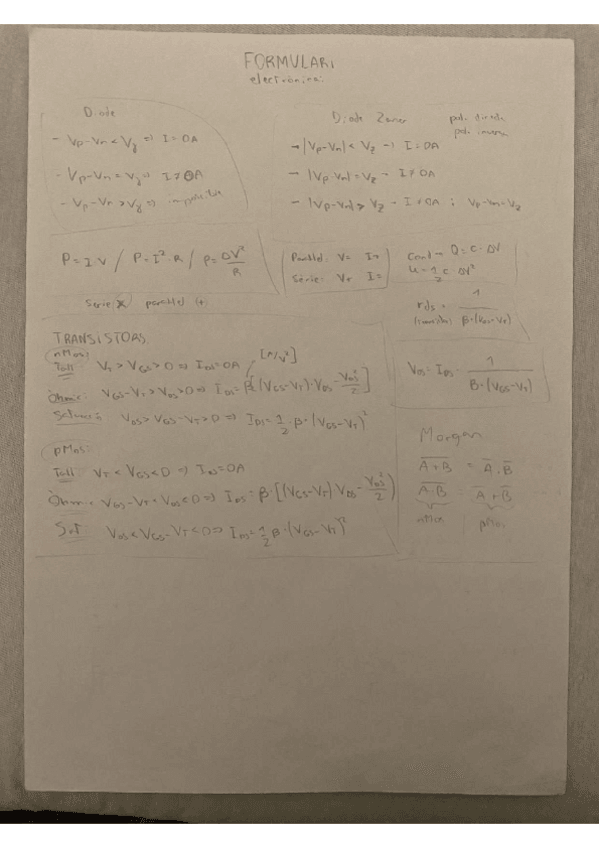 FORMULARI
electrònica:
Díode
- Vp-Vn < Vγ => I = 0A
- Vp-Vn = Vγ => I ≠ 0A
- Vp-Vn > Vγ => impossible
Díode Zener
pol. directa
pol. inversa
→ |Vp-Vn| < Vz → I = 0A
- |Vp-Vn| = Vz - I ≠ 0A
- |Vp-Vn| > Vz - I ≠ 0A ; Vp-Vn = Vz
P = I·V / P = I²·R / P = ΔV²/R
Parallel: V= I+
Sèrie: V+ I=
Cond → Q = C·ΔV
U = 1/2 C·ΔV²
Serie parallel (+)
rds = 1/(β·(VGS-VT))
(transistor)
TRANSISTORS
nMos:
[A/V²]
Tall: VT > VGS > 0 => IDS = 0A
Òhmic: VGS-VT > VDS > 0 => IDS = β[(VGS-VT)·VDS - VDS²/2]
Saturació: VDS > VGS-VT > 0 => IDS = 1/2·β·(VGS-VT)²
VDS = IDS · 1/(β·(VGS-VT))
pMos:
Tall: VT < VGS < 0 => IDS = 0A
Òhmic: VGS-VT < VDS < 0 => IDS = β·[(VGS-VT) VDS - VDS²/2)
Sat: VDS < VGS-VT < 0 => IDS = 1/2 β·(VGS-VT)²
Morgan
A̅+̅B̅ = A̅·B̅
A̅·̅B̅ = A̅+B̅
nMos pMos